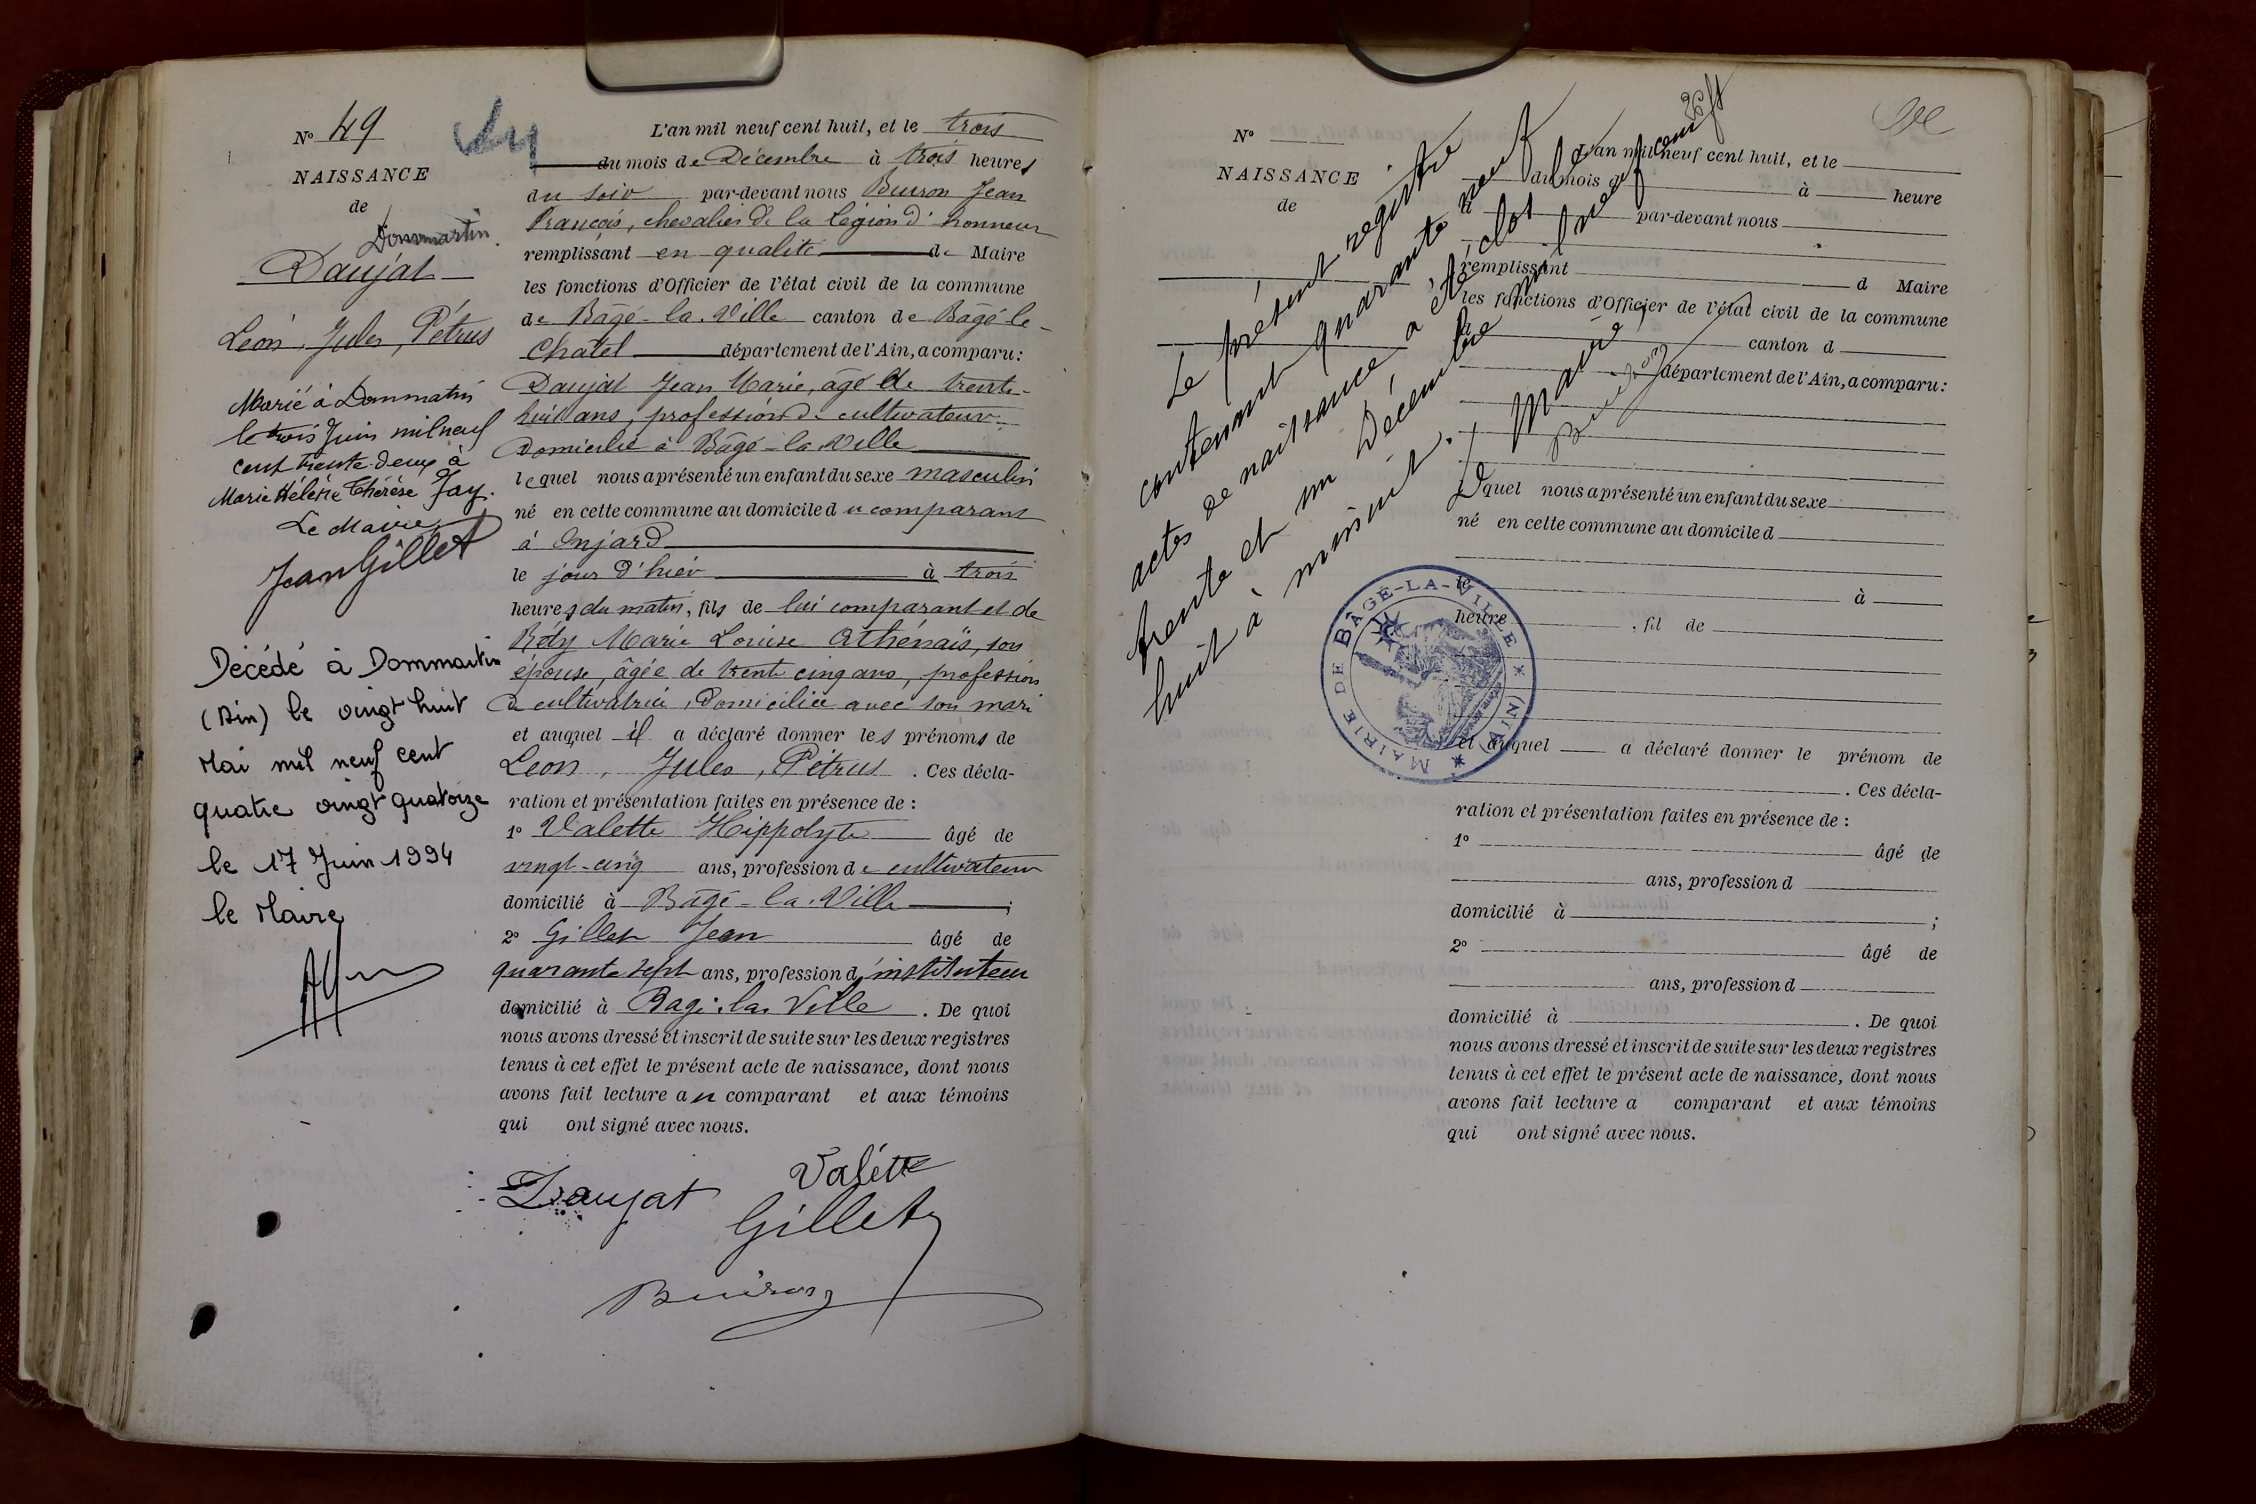 N° 49
NAISSANCE
de
Dommartin
Daujat
Léon, Jules, Pétrus
Marié à Dommatin
le trois Juin mil neuf
cent trente deux à
Marie Hélène Thérèse Jay.
Le Maire,
Jean Gillet
Décédé à Dommartin
(Ain) le vingt huit
Mai mil neuf cent
quatre vingt quatorze
le 17 Juin 1994
le Maire
L'an mil neuf cent huit, et le trois
du mois de Décembre à trois heures
du soir par-devant nous Buiron Jean
François, chevalier de la légion d'honneur
remplissant en qualité de Maire
les fonctions d'Officier de l'état civil de la commune
de Bâgé-la-Ville canton de Bâgé-le-
Chatel département de l'Ain, a comparu:
Daujat Jean Marie, âgé de trente-
huit ans, profession de cultivateur
domicilié à Bâgé-la-Ville
lequel nous a présenté un enfant du sexe masculin
né en cette commune au domicile du comparant
à Onjard
le jour d'hier à trois
heures du matin, fils de lui comparant et de
Réty Marie Louise Athénaïs, son
épouse, âgée de trente cinq ans, profession
de cultivatrice, domiciliée avec son mari
et auquel il a déclaré donner les prénoms de
Léon, Jules, Pétrus . Ces décla-
ration et présentation faites en présence de :
1° Valette Hippolyte âgé de
vingt-cinq ans, profession de cultivateur
domicilié à Bâgé-la-Ville ;
2° Gillet Jean âgé de
quarante sept ans, profession d'instituteur
domicilié à Bagé-la-Ville . De quoi
nous avons dressé et inscrit de suite sur les deux registres
tenus à cet effet le présent acte de naissance, dont nous
avons fait lecture au comparant et aux témoins
qui ont signé avec nous.
Daujat Valette
Gillet
Buiron
Le présent registre
contenant quarante neuf
actes de naissance a été clos le
trente et un Décembre mil neuf cent
huit à minuit.
Le Maire,
Buiron
N°
NAISSANCE
de
L'an mil neuf cent huit, et le
du mois de à heure
par-devant nous
remplissant d Maire
les fonctions d'Officier de l'état civil de la commune
canton d
département de l'Ain, a comparu:
quel nous a présenté un enfant du sexe
né en cette commune au domicile d
le à
heure , fil de
MAIRIE DE BÂGÉ-LA-VILLE * (AIN) *
et auquel a déclaré donner le prénom de
. Ces décla-
ration et présentation faites en présence de :
1° âgé de
ans, profession d
domicilié à ;
2° âgé de
ans, profession d
domicilié à . De quoi
nous avons dressé et inscrit de suite sur les deux registres
tenus à cet effet le présent acte de naissance, dont nous
avons fait lecture a comparant et aux témoins
qui ont signé avec nous.